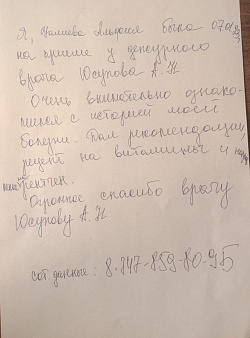 Я, Валиева Людмила была 07.01.
на приеме у дежурного
врача Юсупова А. Н
Очень внимательно ознако-
мился с историей моей
болезни. Дал рекомендации,
рецепт на витамины и
Огромное спасибо врачу
Юсупову А. Н
сот. данные: 8.347-859-80-95